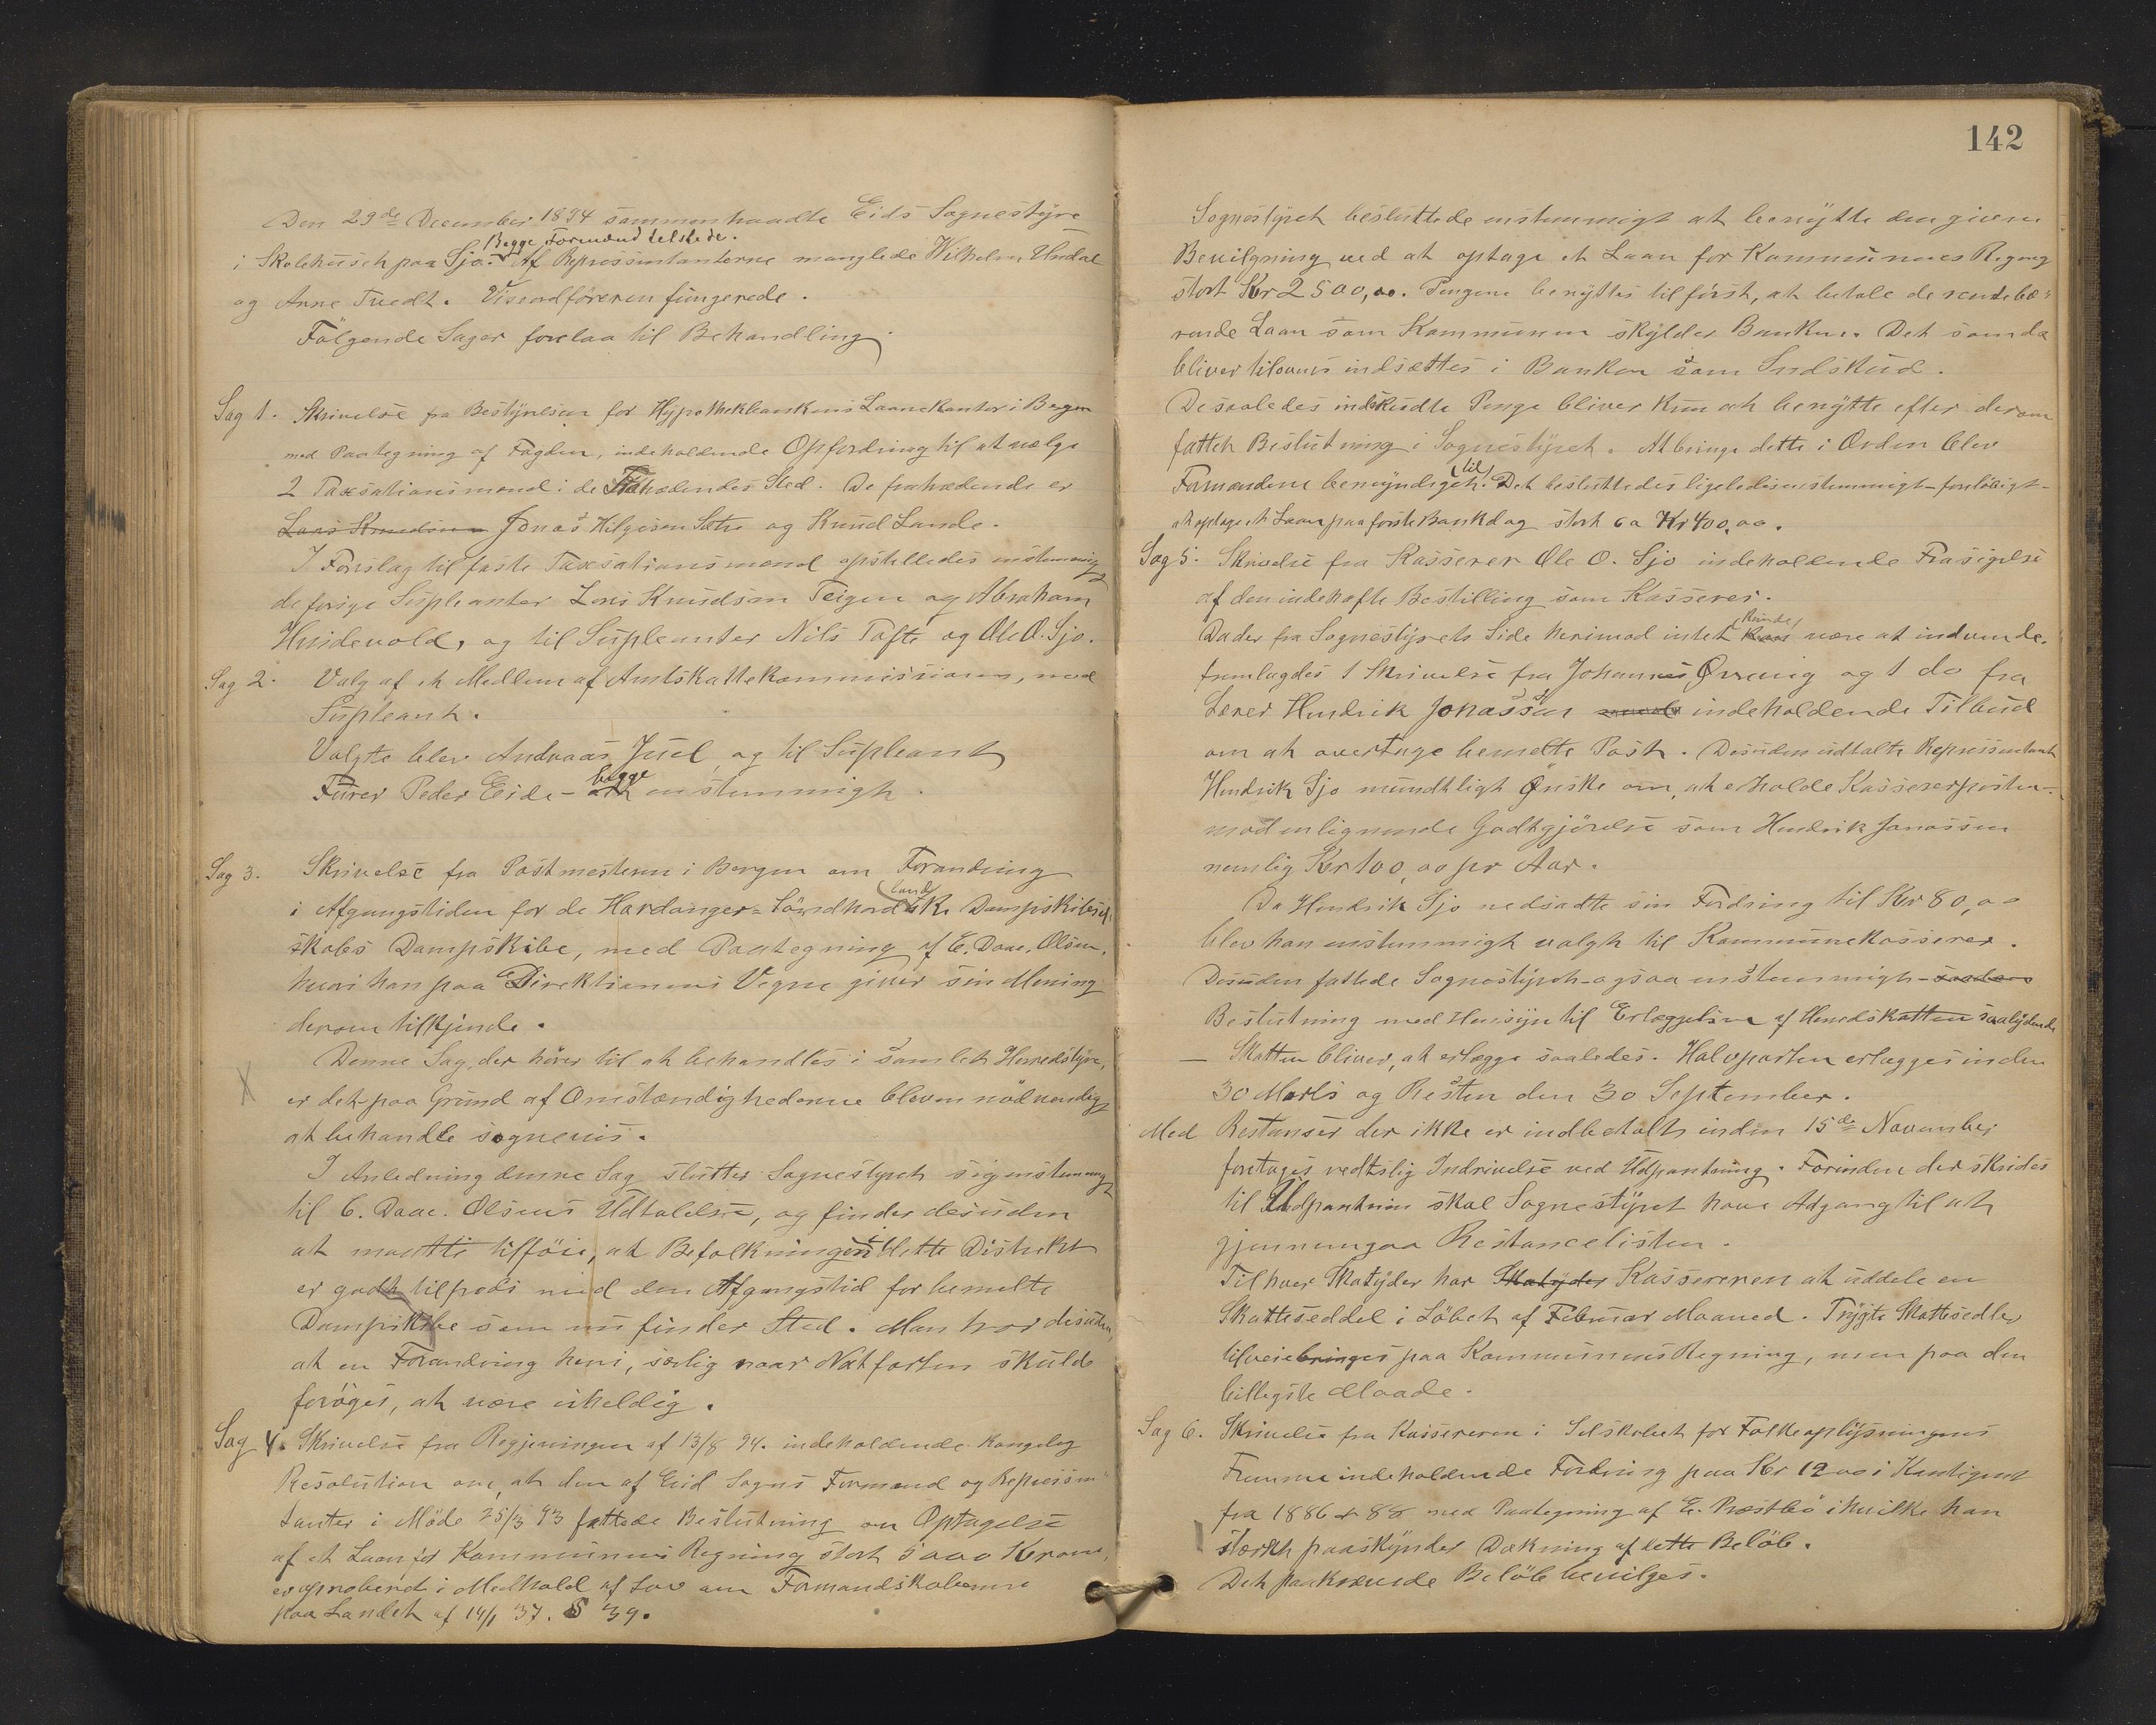 Den 29de December 1894 sammentraadte Eids Sognestyre
Begge Formænd tilstede.
i Skolehuset paa Sjo. Af Repressentanterne manglede Wilhelm Undal
og Arne Tvedt. Viseordføreren fungerede.
Følgende Sager forelaa til Behandling
Sag 1. Skrivelse fra Bestyrelsen for Hypothekbankens Laanekontor i Bergen
med Paategning af Fogden, indeholdende Opfordring til at vælge
2 Taxsationsmænd i de Fratrædendes Sted. De fratrædende er
Lars Knudsen Jonas Helgesen Sætre og Knud Lande.
I Forslag til faste Taxsationsmænd opstilledes enstemmig
de forige Supleanter Lars Knudsen Teigen og Abraham
Hvidevold, og til Supleanter Nils Tofte og Ole O. Sjo.
Sag 2. Valg af et Medlem af Amtskattekommissionen, med
Supleant.
Valgte blev Andreas Juel, og til Supleant
Furer Peder Eide - begge enstemmigt.
Sag 3. Skrivelse fra Postmesteren i Bergen om Forandring
land
i Afgangstiden for de Hardanger-Søndhordske Dampskibssel-
skabs Dampskibe, med Paategning af C. Daae. Olsen,
hvori han paa Direktionens Vegne giver sin Mening
derom tilkjende.
Denne Sag, der hører til at behandles i samlet Herredstyre,
er det paa Grund af Omstændighederne bleven nødvendig
at behandle sognevis.
I Anledning denne Sag slutter Sognestyret sig enstemmig
til C. Daae. Olsens Udtalelse, og finder desuden
at maatte tilføie, at Befolkningen i dette Distrikt
er godt tilfreds med den Afgangstid for bemelte
Dampskibe som nu finder Sted. Man tror desuden,
at en Forandring heri, særlig naar Natfarten skulde
forøges, at være uheldig.
Sag 4. Skrivelse fra Regjeringen af 13/8 94. indeholdende kongelig
Resolution om, at den af Eid Sogns Formænd og Repressen-
tanter i Møde 25/3 93 fattede Beslutning om Optagelse
af et Laan for Kommunens Regning stort 5000 Kroner,
er aproberet i Medhold af Lov om Formandskaberne
paa Landet af 14/1 37. § 39.
142
Sognestyret besluttede enstemmigt at benytte den givne
Bevilgning ved at optage et Laan for Kommunens Regng
stort Kr 2500,00. Pengene benyttes til først, at betale de rentebæ-
rende Laan som Kommunen skylder Banken. Det som da
bliver tilovers indsættes i Banken som Indskud.
De saaledes indskudte Penge bliver kun at benytte efter derom
fattet Beslutning i Sognestyret. At bringe dette i Orden blev
Formændene bemyndiget til. Det besluttedes ligeledes enstemmigt - foreløbigt -
at optage et Laan paa første Bankdag stort ca Kr 400,00.
Sag 5. Skrivelse fra Kasserer Ole O. Sjo indeholdende Frasigelse
af den indehafte Bestilling som Kasserer.
Da der fra Sognestyrets Side herimod intet kunde være at indvende,
fremlagdes 1 Skrivelse fra Johannes Øvrevig og 1 do fra
Lærer Hendrik Jonassen indeholdende Tilbud
om at overtage bemelte Post. Desuden udtalte Repressentant
Hendrik Sjo mundtligt Ønske om, at erholde Kassererposten -
mod en lignende Godtgjørelse som Hendrik Jonassen
nemlig Kr 100,00 pr Aar.
Da Hendrik Sjo nedsadte sin Fordring til Kr 80,00
blev han enstemmigt valgt til Kommunekasserer.
Desuden fattede Sognestyret - ogsaa enstemmigt -
Beslutning med Hensyn til Erlæggelsen af Herredskatten saalydende
— Skatten bliver, at erlægge saaledes. Halvparten erlægges inden
30 Marts og Resten den 30 September.
Med Restanser der ikke er indbetalt inden 15de November
foretages retslig Indrivelse ved Udpantning. Forinden der skrides
til Udpantnin skal Sognestyret have Adgang til at
gjennemgaa Restancelisten.
Til hver Skatyder har Skatyder Kassereren at uddele en
Skatteseddel i Løbet af Februar Maaned. Trygte Skattesedler
tilveiebringes paa Kommunens Regning, men paa den
billigste Maade.
Sag 6. Skrivelse fra Kassereren i Selskabet for Folkeoplysningens
Fremme indeholdende Fordring paa Kr 12 00 i Kontigent
fra 1886 & 88 med Paategning af E. Præstbø i hvilke han
stærkt paaskynder Dækning af dette Beløb.
Det paakrævede Beløb bevilges.